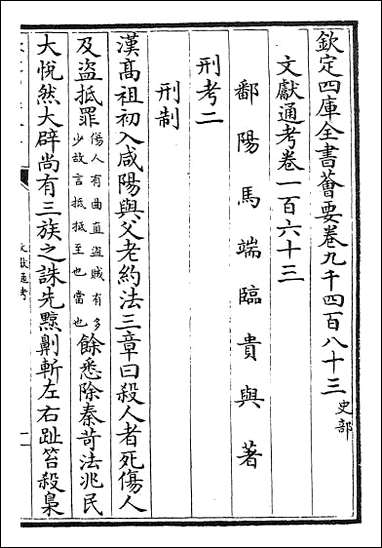 欽定四庫全書薈要卷九千四百八十三 史部
文獻通考卷一百六十三
鄱陽馬端臨貴與著
刑考二
刑制
漢髙祖初入咸陽與父老約法三章曰殺人者死傷人
及盜抵罪傷人有曲直盜賊有多少故言抵抵至也當也餘悉除秦苛法兆民
大悅然大辟尚有三族之誅先黥劓斬左右趾笞殺梟